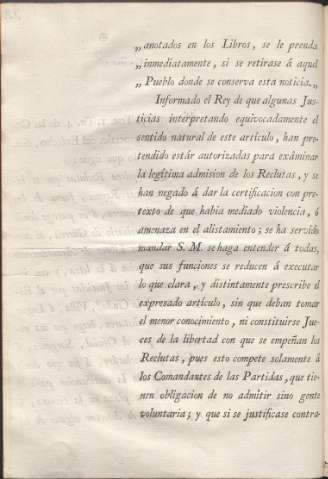 „anotados en los Libros, se le prenda
„inmediatamente, si se retirase á aquel
„Pueblo donde se conserva esta noticia.„
Informado el Rey de que algunas Jus-
ticias interpretando equivocadamente el
sentido natural de este artículo, han pre-
tendido estár autorizadas para exâminar
la legítima admision de los Reclutas, y se
han negado á dar la certificacion con pre-
texto de que habia mediado violencia, ó
amenaza en el alistamiento; se ha servido
mandar S. M. se haga entender á todas,
que sus funciones se reducen á executar
lo que clara, y distintamente prescribe el
expresado artículo, sin que deban tomar
el menor conocimiento, ni constituirse Jue-
ces de la libertad con que se empeñan los
Reclutas, pues esto compete solamente á
los Comandantes de las Partidas, que tie-
nen obligacion de no admitir sino gente
voluntaria; y que si se justificase contra-